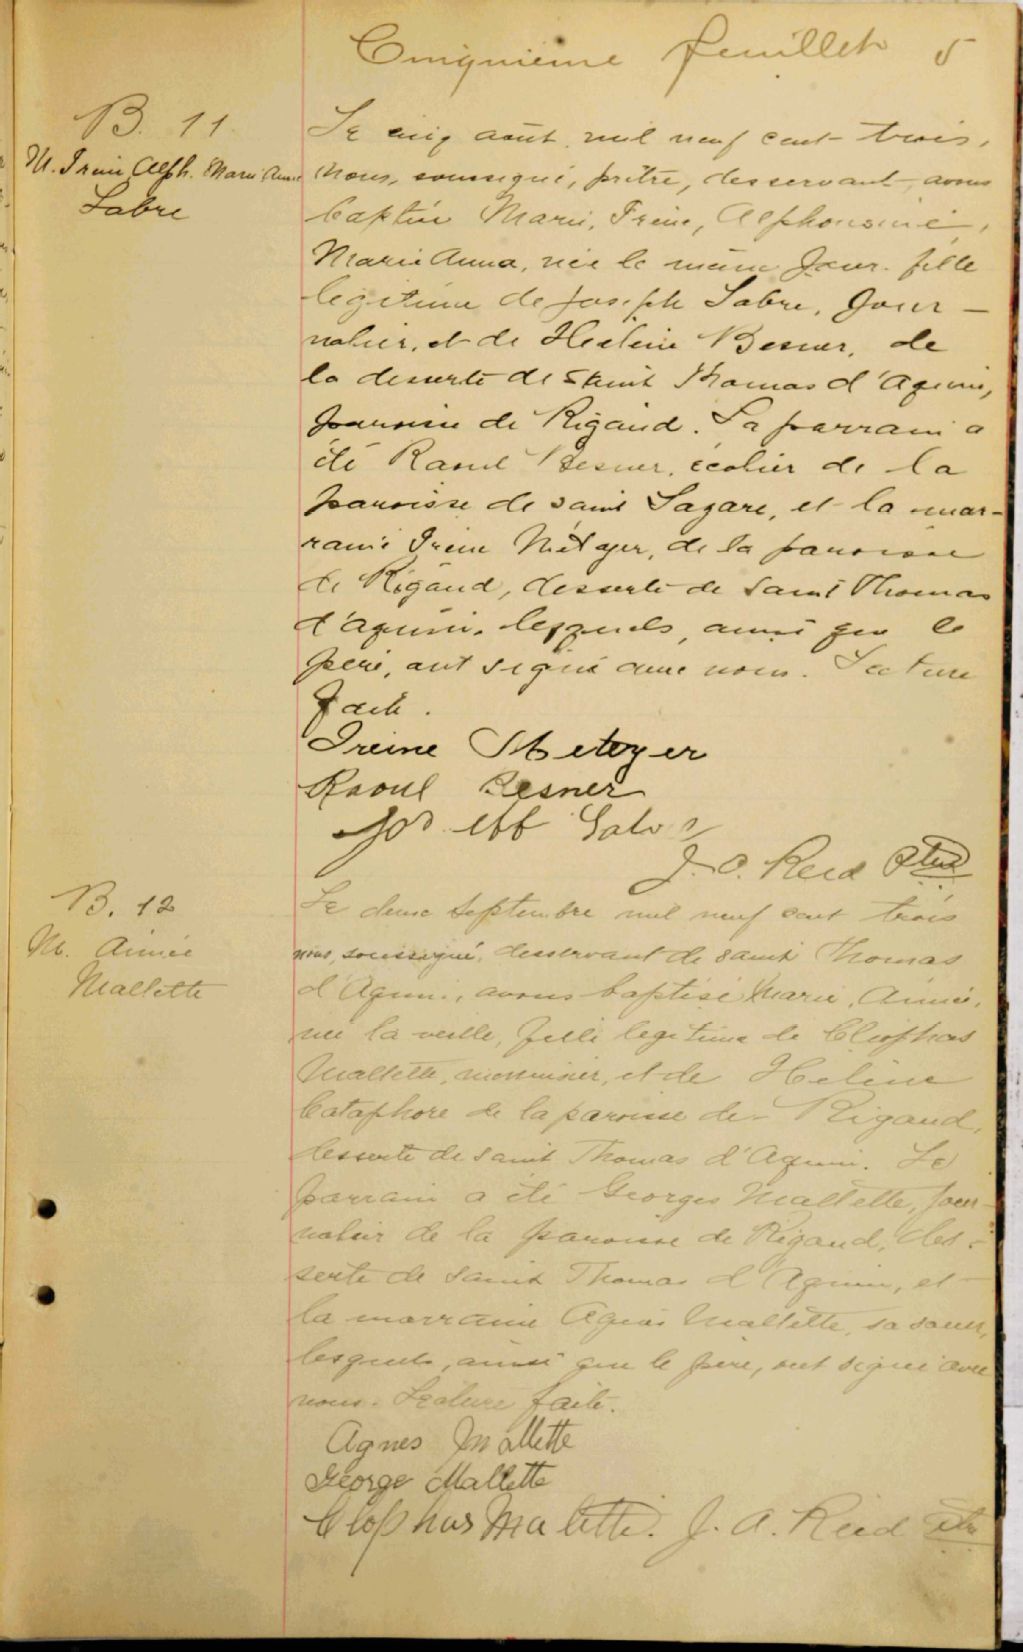 Cinquième feuillet 5
B. 11
M. Irène Alph. Marie Anna
Sabre
Le cinq août mil neuf cent trois,
nous, soussigné, prêtre, desservant avons
baptisé Marie, Irène, Alphonsine,
Marie Anna, née le même jour. fille
légitime de Joseph Sabre, jour-
nalier, et de Héxleine Besner, de
la desserte de saint Thomas d'Aquin,
paroisse de Rigaud. La parrain a
été Raoul Besner, écolier de la
paroisse de saint Lazare, et la mar-
raine Irène Métzyer, de la paroisse
de Rigaud, desserte de saint Thomas
d'Aquin. lesquels, ainsi que le
père, ont signé avec nous. Lecture
faite.
Ireine Metzyer
Raoul Besner
Jos
J. A. Reid ptre
B. 12
M. Aimée
Mallette
Le deux septembre mil neuf cent trois
nous, soussigné, desservant de saint Thomas
d'Aquin, avons baptisé Marie, Aimée,
née la veille, fille légitime de Cléophas
Mallette, menuisier, et de Hélène
Cataphore de la paroisse de Rigaud,
desserte de saint Thomas d'Aquin. Le
parrain a été Georges Mallette, jour-
nalier de la paroisse de Rigaud, des-
serte de saint Thomas d'Aquin, et
la marraine Agnès Mallette, sa soeur,
lesquels, ainsi que le père, ont signé avec
nous. Lecture faite.
Agnes Mallette
George Mallette
Clophas Malette. J. A. Reid ptre